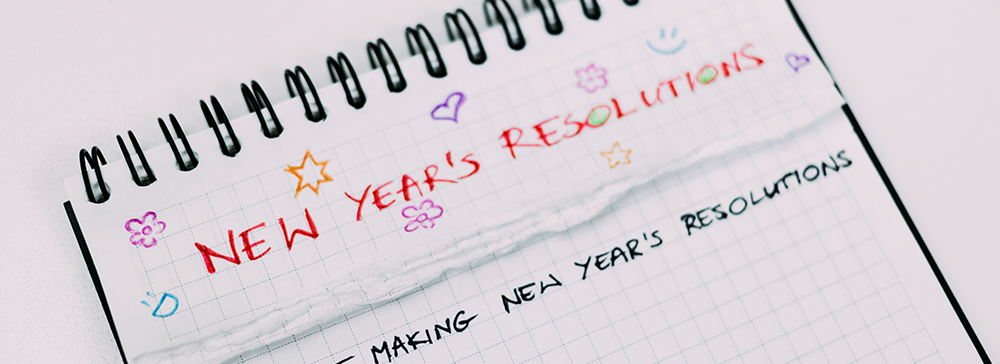 NEW YEAR'S RESOLUTIONS
- MAKING NEW YEAR'S RESOLUTIONS